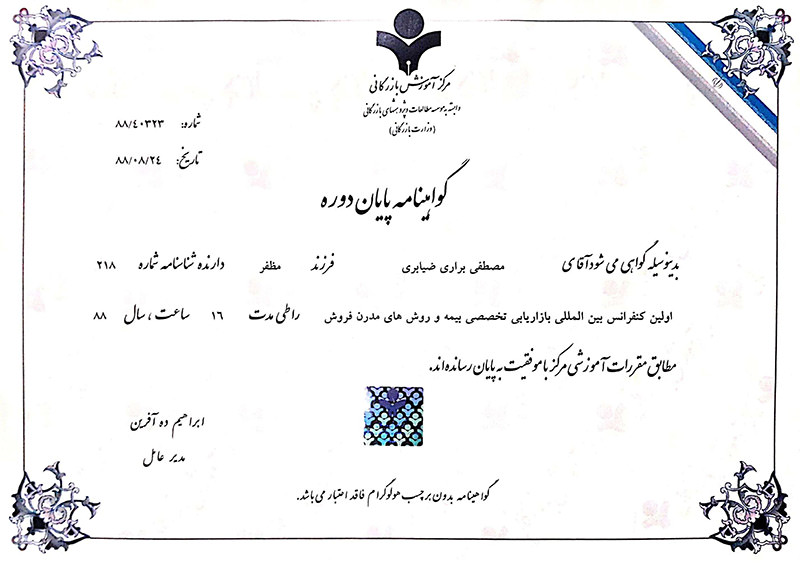 مرکز آموزش بازرگانی
وابسته به موسسه مطالعات و پژوهشهای بازرگانی
(وزارت بازرگانی)
شماره: ۸۸/٤۰۳۲۳
تاریخ: ۸۸/۰۸/۲٤
گواهینامه پایان دوره
بدینوسیله گواهی می شود آقای مصطفی براری ضیابری فرزند مظفر دارنده شناسنامه شماره ۲۱۸
اولین کنفرانس بین المللی بازاریابی تخصصی بیمه و روش های مدرن فروش را طی مدت ۱۶ ساعت ، سال ۸۸
مطابق مقررات آموزشی مرکز با موفقیت به پایان رسانده اند.
ابراهیم ده آفرین
مدیر عامل
گواهینامه بدون برچسب هولوگرام فاقد اعتبار می باشد.